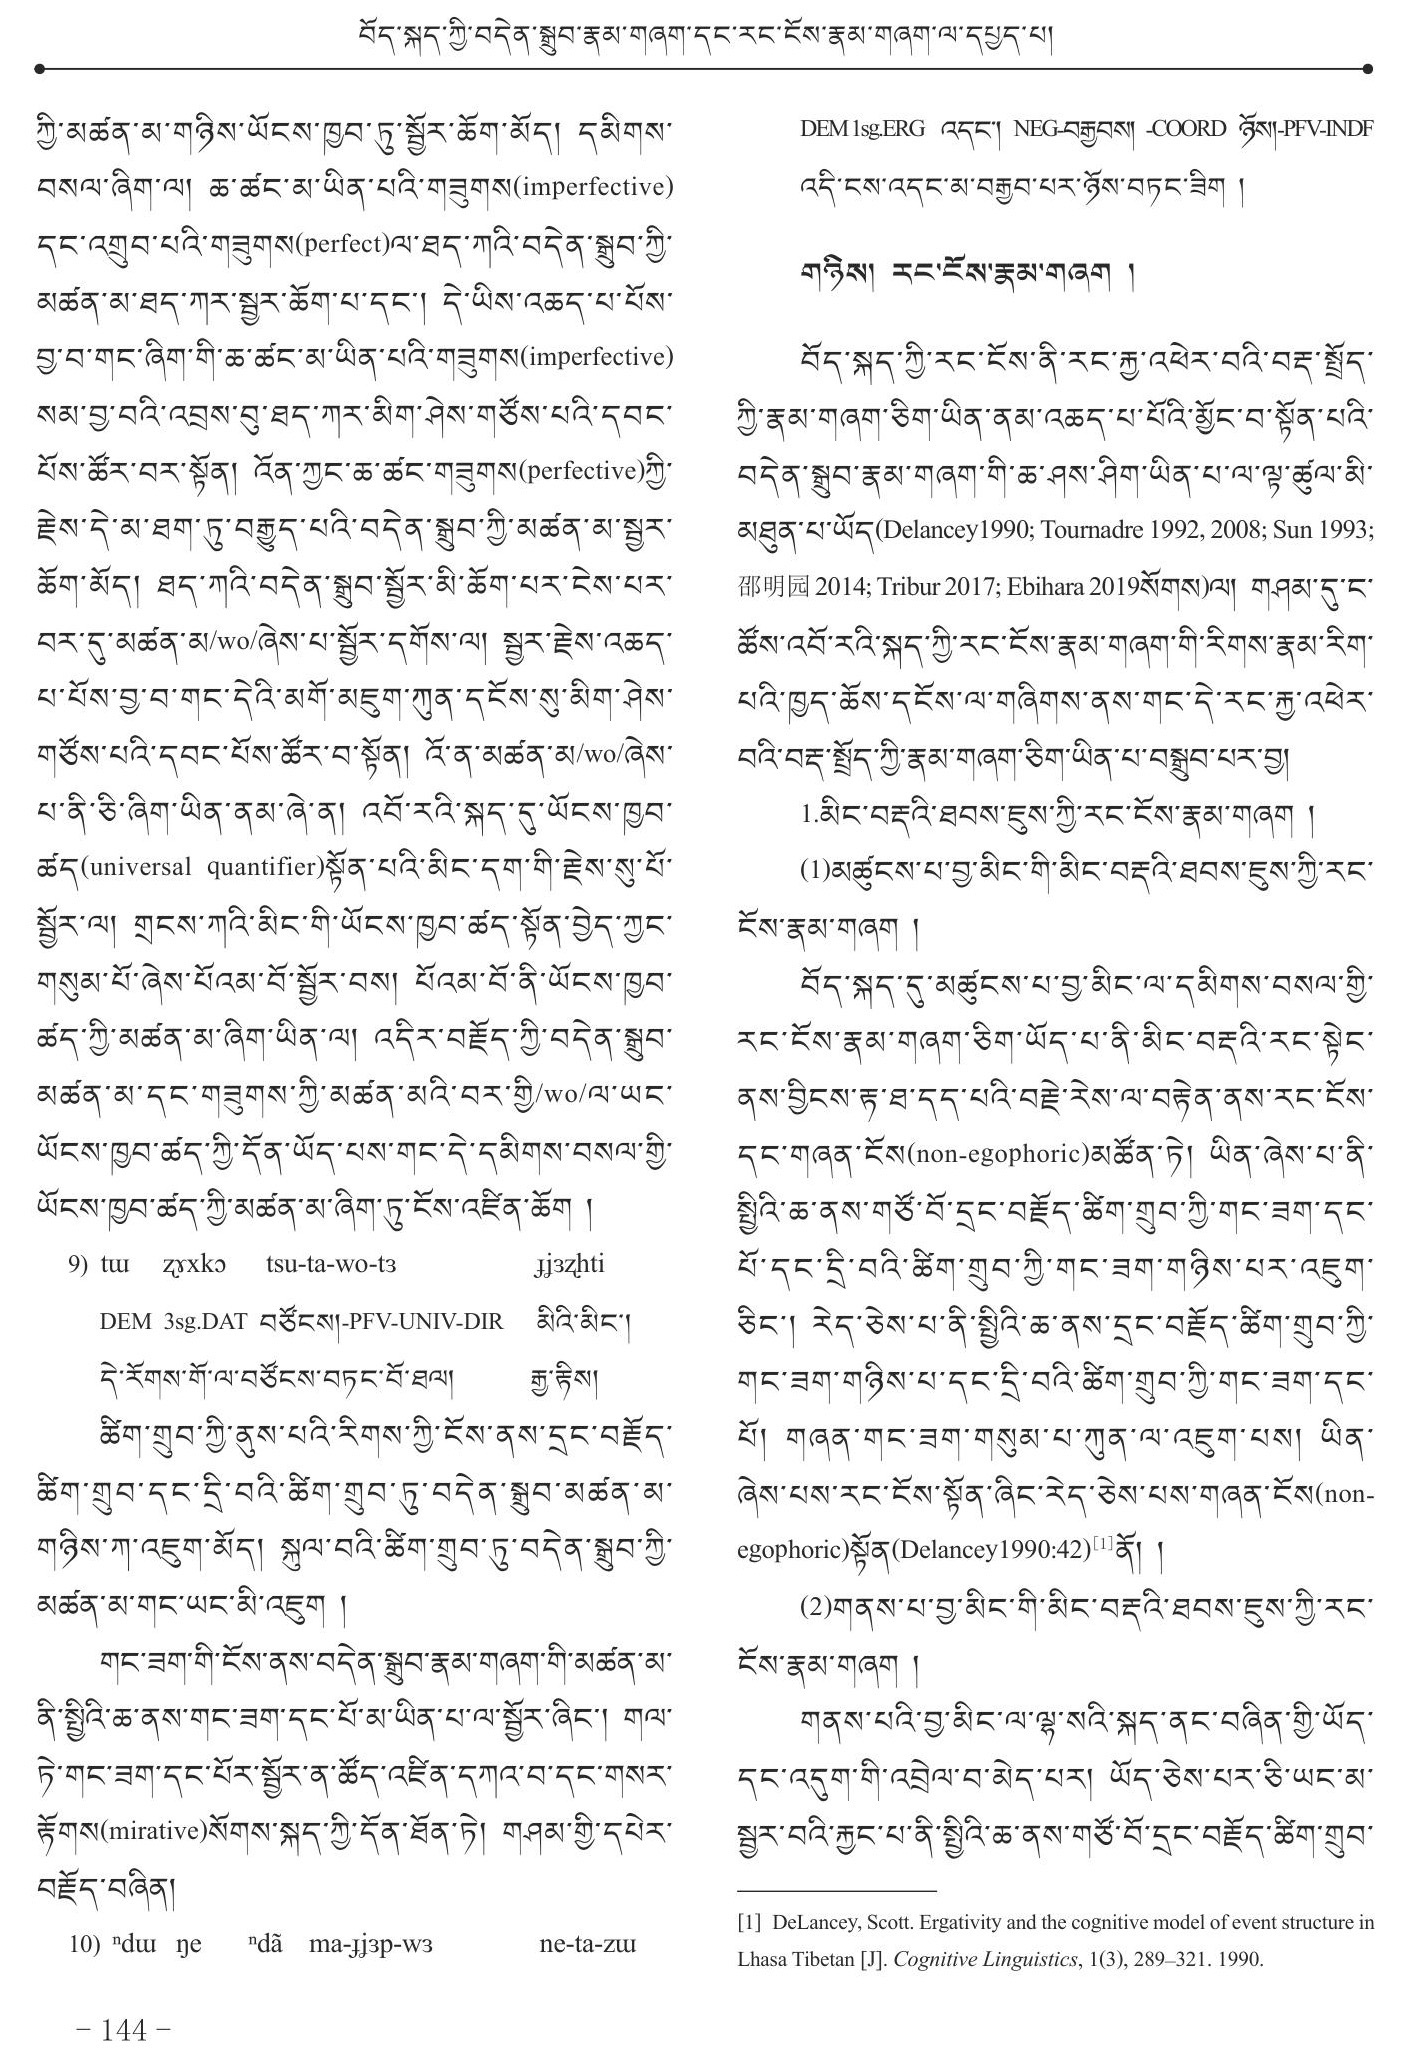 བོད་སྐད་ཀྱི་བདེན་སྒྲུབ་རྣམ་གཞག་དང་རང་ངོས་རྣམ་གཞག་ལ་དཔྱད་པ།
ཀྱི་མཚན་མ་གཉིས་ཡོངས་ཁྱབ་ཏུ་སྦྱོར་ཆོག་མོད། དམིགས་
བསལ་ཞིག་ལ། ཆ་ཚང་མ་ཡིན་པའི་གཟུགས(imperfective)
དང་འགྲུབ་པའི་གཟུགས(perfect)ལ་ཐད་ཀའི་བདེན་སྒྲུབ་ཀྱི་
མཚན་མ་ཐད་ཀར་སྦྱར་ཆོག་པ་དང༌། དེ་ཡིས་འཆད་པ་པོས་
བྱ་བ་གང་ཞིག་གི་ཆ་ཚང་མ་ཡིན་པའི་གཟུགས(imperfective)
སམ་བྱ་བའི་འབྲས་བུ་ཐད་ཀར་མིག་ཤེས་གཙོས་པའི་དབང་
པོས་ཚོར་བར་སྟོན། འོན་ཀྱང་ཆ་ཚང་གཟུགས(perfective)ཀྱི་
རྗེས་དེ་མ་ཐག་ཏུ་བརྒྱུད་པའི་བདེན་སྒྲུབ་ཀྱི་མཚན་མ་སྦྱར་
ཆོག་མོད། ཐད་ཀའི་བདེན་སྒྲུབ་སྦྱོར་མི་ཆོག་པར་ངེས་པར་
བར་དུ་མཚན་མ/wo/ཞེས་པ་སྦྱོར་དགོས་ལ། སྦྱར་རྗེས་འཆད་
པ་པོས་བྱ་བ་གང་དེའི་མགོ་མཇུག་ཀུན་དངོས་སུ་མིག་ཤེས་
གཙོས་པའི་དབང་པོས་ཚོར་བ་སྟོན། འོ་ན་མཚན་མ/wo/ཞེས་
པ་ནི་ཅི་ཞིག་ཡིན་ནམ་ཞེ་ན། འབོ་རའི་སྐད་དུ་ཡོངས་ཁྱབ་
ཚད(universal quantifier)སྟོན་པའི་མིང་དག་གི་རྗེས་སུ་པོ་
སྦྱོར་ལ། གྲངས་ཀའི་མིང་གི་ཡོངས་ཁྱབ་ཚད་སྟོན་བྱེད་ཀྱང་
གསུམ་པོ་ཞེས་པོའམ་བོ་སྦྱོར་བས། པོའམ་བོ་ནི་ཡོངས་ཁྱབ་
ཚད་ཀྱི་མཚན་མ་ཞིག་ཡིན་ལ། འདིར་བརྗོད་ཀྱི་བདེན་སྒྲུབ་
མཚན་མ་དང་གཟུགས་ཀྱི་མཚན་མའི་བར་གྱི/wo/ལ་ཡང་
ཡོངས་ཁྱབ་ཚད་ཀྱི་དོན་ཡོད་པས་གང་དེ་དམིགས་བསལ་གྱི་
ཡོངས་ཁྱབ་ཚད་ཀྱི་མཚན་མ་ཞིག་ཏུ་ངོས་འཛིན་ཆོག །
9) tɯ ʐɤxkɔ tsu-ta-wo-tɜ ɟʝɜʐhti
DEM 3sg.DAT བཙོངས།-PFV-UNIV-DIR མིའི་མིང༌།
དེ་རོགས་གོ་ལ་བཙོངས་བཏང་བོ་ཐལ། རྒྱ་རྟིས།
ཚིག་གྲུབ་ཀྱི་ནུས་པའི་རིགས་ཀྱི་ངོས་ནས་དྲང་བརྗོད་
ཚིག་གྲུབ་དང་དྲི་བའི་ཚིག་གྲུབ་ཏུ་བདེན་སྒྲུབ་མཚན་མ་
གཉིས་ཀ་འཇུག་མོད། སྐུལ་བའི་ཚིག་གྲུབ་ཏུ་བདེན་སྒྲུབ་ཀྱི་
མཚན་མ་གང་ཡང་མི་འཇུག །
གང་ཟག་གི་ངོས་ནས་བདེན་སྒྲུབ་རྣམ་གཞག་གི་མཚན་མ་
ནི་སྤྱིའི་ཆ་ནས་གང་ཟག་དང་པོ་མ་ཡིན་པ་ལ་སྦྱོར་ཞིང༌། གལ་
ཏེ་གང་ཟག་དང་པོར་སྦྱོར་ན་ཚོད་འཛིན་དཀའ་བ་དང་གསར་
རྟོགས(mirative)སོགས་སྐད་ཀྱི་དོན་ཐོན་ཏེ། གཤམ་གྱི་དཔེར་
བརྗོད་བཞིན།
10) ⁿdɯ ŋe ⁿdã ma-ɟʝɜp-wɜ ne-ta-zɯ
DEM 1sg.ERG འདང༌། NEG-བརྒྱབས། -COORD ཉོས།-PFV-INDF
འདི་ངས་འདང་མ་བརྒྱབ་པར་ཉོས་བཏང་ཟིག །
གཉིས། རང་ངོས་རྣམ་གཞག །
བོད་སྐད་ཀྱི་རང་ངོས་ནི་རང་རྐྱ་འཕེར་བའི་བརྡ་སྤྲོད་
ཀྱི་རྣམ་གཞག་ཅིག་ཡིན་ནམ་འཆད་པ་པོའི་མྱོང་བ་སྟོན་པའི་
བདེན་སྒྲུབ་རྣམ་གཞག་གི་ཆ་ཤས་ཤིག་ཡིན་པ་ལ་ལྟ་ཚུལ་མི་
མཐུན་པ་ཡོད(Delancey1990; Tournadre 1992, 2008; Sun 1993;
邵明园 2014; Tribur 2017; Ebihara 2019སོགས)ལ། གཤམ་དུ་ང་
ཚོས་འབོ་རའི་སྐད་ཀྱི་རང་ངོས་རྣམ་གཞག་གི་རིགས་རྣམ་རིག་
པའི་ཁྱད་ཆོས་དངོས་ལ་གཞིགས་ནས་གང་དེ་རང་རྐྱ་འཕེར་
བའི་བརྡ་སྤྲོད་ཀྱི་རྣམ་གཞག་ཅིག་ཡིན་པ་བསྒྲུབ་པར་བྱ།
1.མིང་བརྡའི་ཐབས་ཇུས་ཀྱི་རང་ངོས་རྣམ་གཞག །
(1)མཚུངས་པ་བྱ་མིང་གི་མིང་བརྡའི་ཐབས་ཇུས་ཀྱི་རང་
ངོས་རྣམ་གཞག །
བོད་སྐད་དུ་མཚུངས་པ་བྱ་མིང་ལ་དམིགས་བསལ་གྱི་
རང་ངོས་རྣམ་གཞག་ཅིག་ཡོད་པ་ནི་མིང་བརྡའི་རང་སྟེང་
ནས་བྱིངས་རྟ་ཐ་དད་པའི་བརྗེ་རེས་ལ་བརྟེན་ནས་རང་ངོས་
དང་གཞན་ངོས(non-egophoric)མཚོན་ཏེ། ཡིན་ཞེས་པ་ནི་
སྤྱིའི་ཆ་ནས་གཙོ་བོ་དྲང་བརྗོད་ཚིག་གྲུབ་ཀྱི་གང་ཟག་དང་
པོ་དང་དྲི་བའི་ཚིག་གྲུབ་ཀྱི་གང་ཟག་གཉིས་པར་འཇུག་
ཅིང༌། རེད་ཅེས་པ་ནི་སྤྱིའི་ཆ་ནས་དྲང་བརྗོད་ཚིག་གྲུབ་ཀྱི་
གང་ཟག་གཉིས་པ་དང་དྲི་བའི་ཚིག་གྲུབ་ཀྱི་གང་ཟག་དང་
པོ། གཞན་གང་ཟག་གསུམ་པ་ཀུན་ལ་འཇུག་པས། ཡིན་
ཞེས་པས་རང་ངོས་སྟོན་ཞིང་རེད་ཅེས་པས་གཞན་ངོས(non-
egophoric)སྟོན(Delancey1990:42)[1]ནོ། །
(2)གནས་པ་བྱ་མིང་གི་མིང་བརྡའི་ཐབས་ཇུས་ཀྱི་རང་
ངོས་རྣམ་གཞག །
གནས་པའི་བྱ་མིང་ལ་ལྷ་སའི་སྐད་ནང་བཞིན་གྱི་ཡོད་
དང་འདུག་གི་འབྲེལ་བ་མེད་པར། ཡོད་ཅེས་པར་ཅི་ཡང་མ་
སྦྱར་བའི་རྐྱང་པ་ནི་སྤྱིའི་ཆ་ནས་གཙོ་བོ་དྲང་བརྗོད་ཚིག་གྲུབ་
[1] DeLancey, Scott. Ergativity and the cognitive model of event structure in
Lhasa Tibetan [J]. Cognitive Linguistics, 1(3), 289–321. 1990.
- 144 -